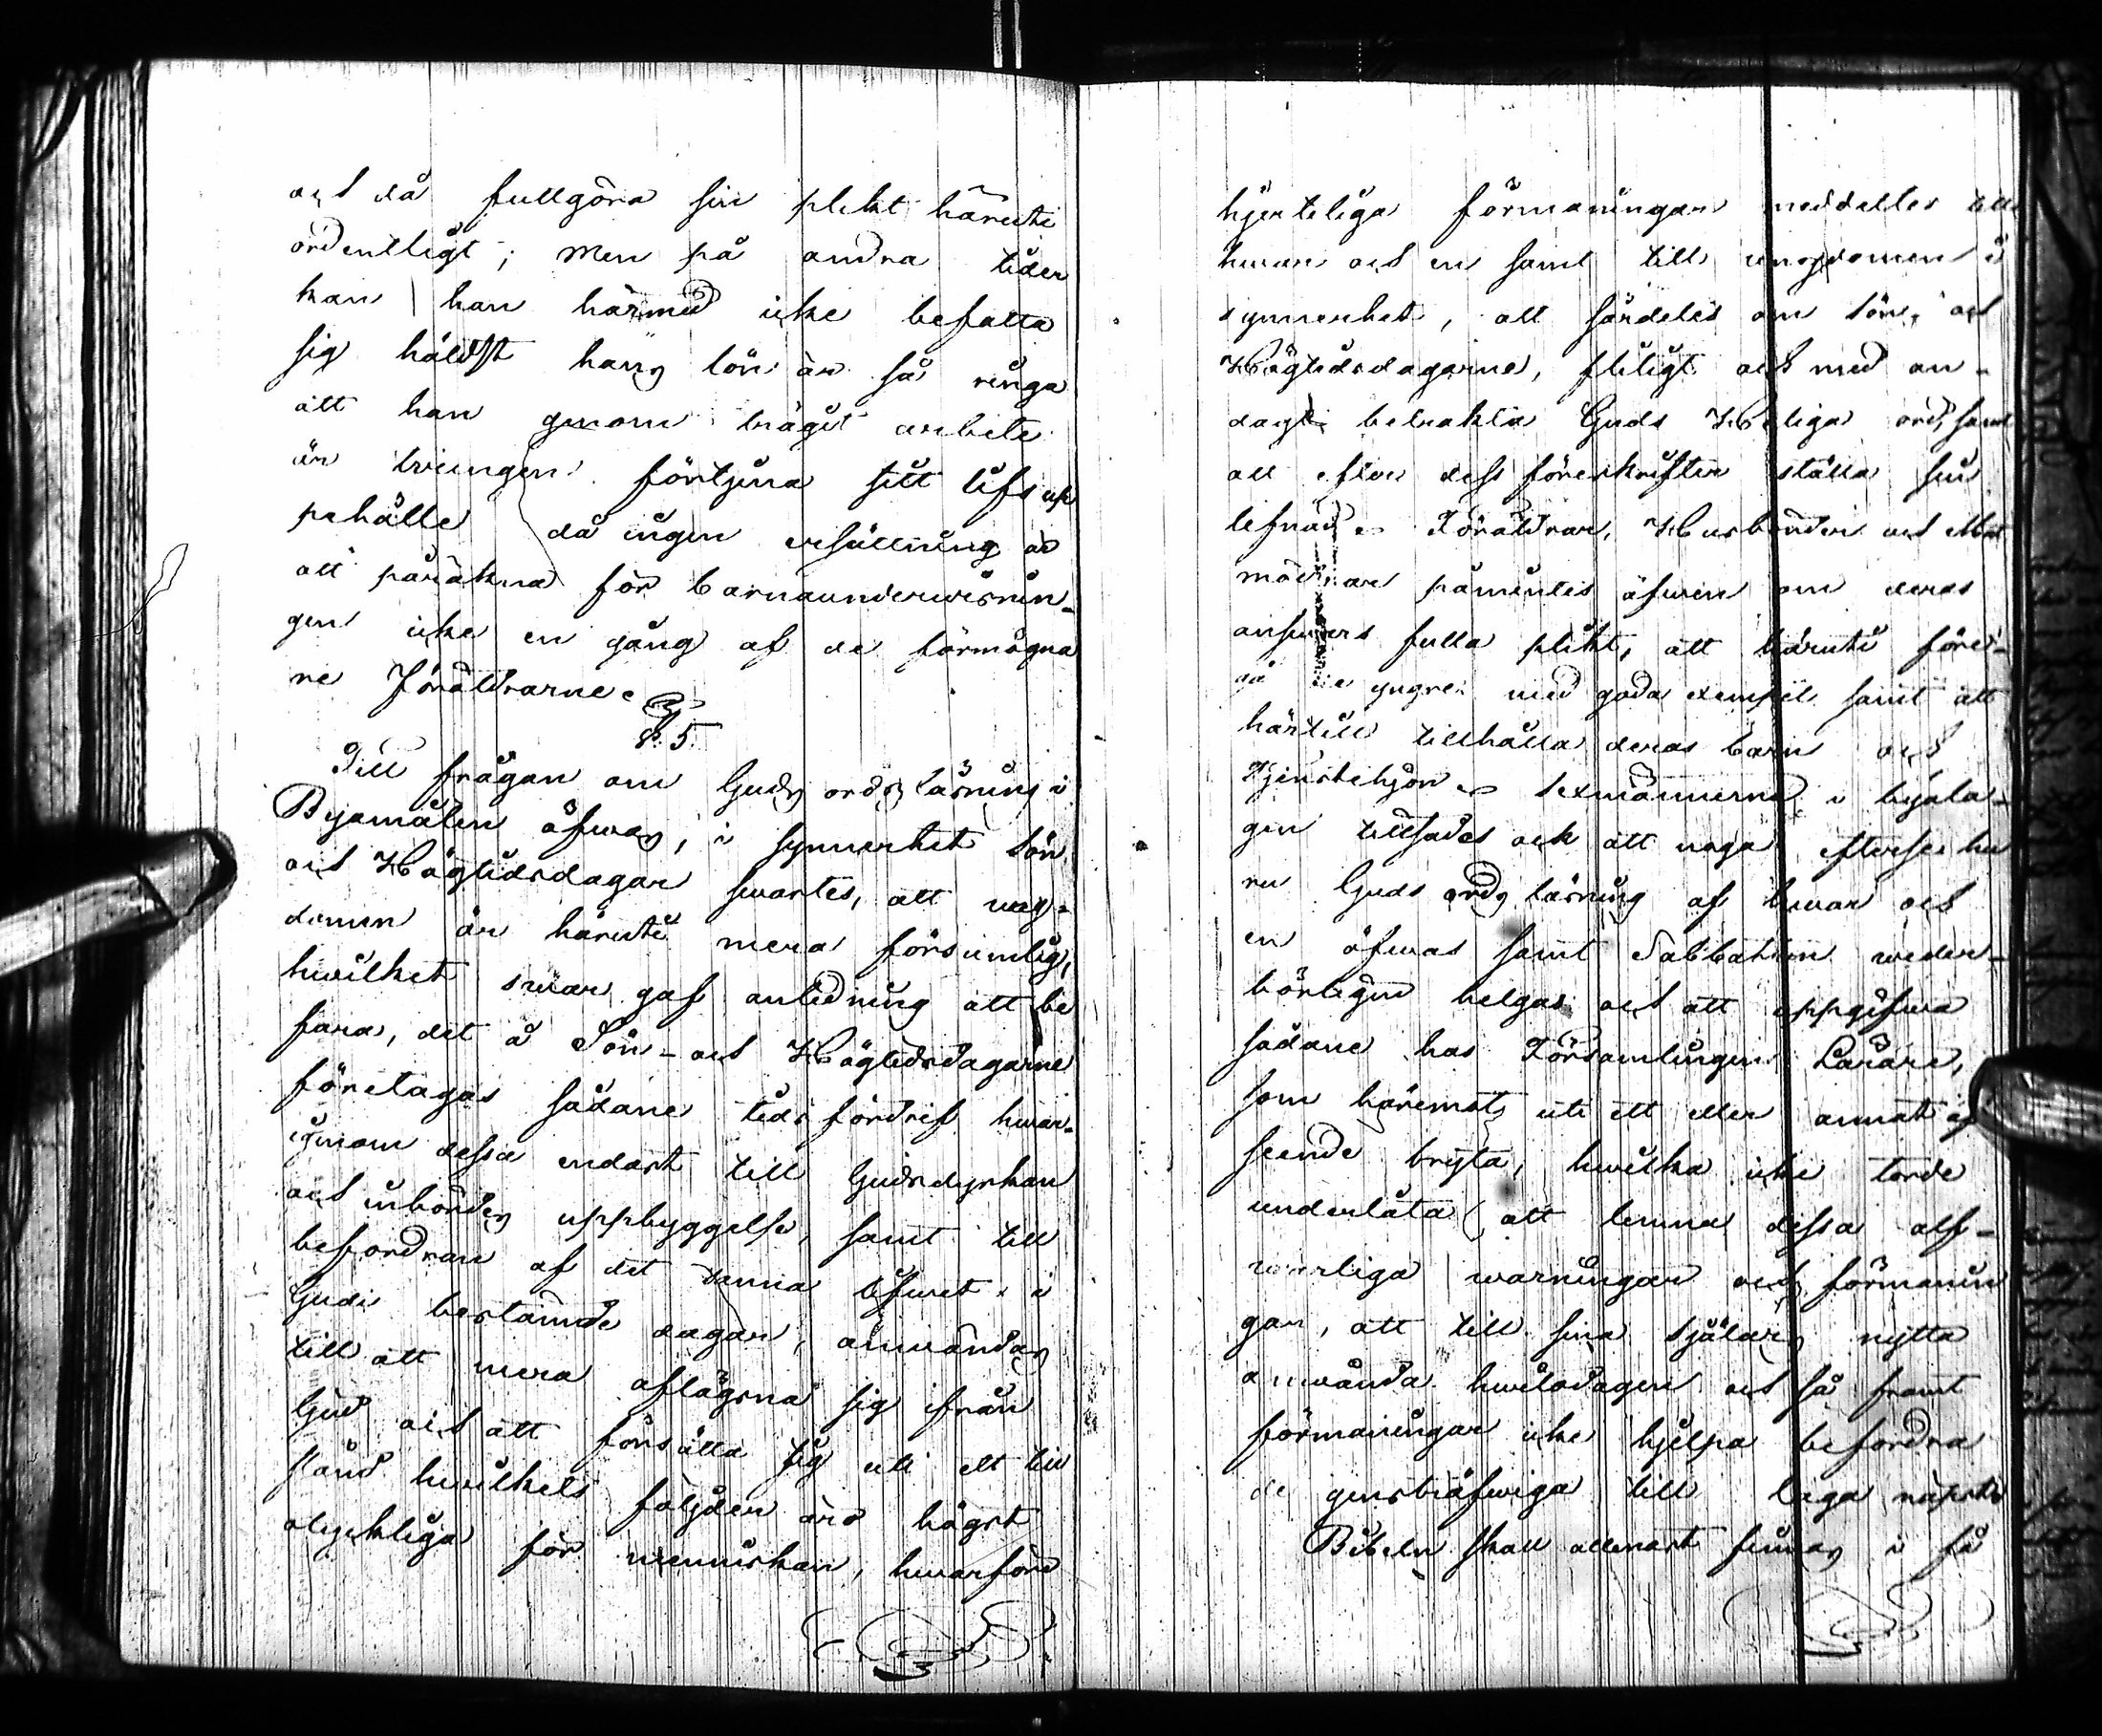 och då fullgöra sin plikt häruti
ordentligt; Men på andra tider
kan han härmed icke befatta
sig häldst hans lön är så ringa
att han genom träget arbete
är tvungen förtjena sitt lifsup
pehälle då ingen ersättning är
att påräkna för barnaunderwisnin-
gen icke en gång af de förmögna
re Föräldrarne.
§ 5.
Till frågan om Guds ords läsning i
Byamålen öfwas, i synnerhet Sön
och Högtidsdagar swartes, att ung-
domen är häruti mera försumlig,
hwilket swar gaf anledning att be
fara, det å Sön- och Högtidsdagarne
företagas sådane tidsfördrif hwar-
igenom dessa endast till Gudsdyrkan
och inbördes uppbyggelse, samt till
befordran af det sanna lifwet i
Gudi bestämde dagar, användas
till att mera aflägsna sig ifrån
Gud och att försätta sig uti ett till
stånd hwilkets följder äro högst
olyckliga för menniskan, hwarföre
hjerteliga förmaningar meddeltes till
hwar och en samt till ungdomen i
synnerhet, att särdeles om Sön- och
Högtidsdagarne, flitigt och med an-
dagt betrakta Guds Heliga ord, samt
att efter dess föreskrifter ställa sin
lefnad. Föräldrar, Husbönder och Mat
mödrar påmintes äfwen om deras
answars fulla plikt, att häruti före-
gå de yngre med goda exempel samt att
härtill tillhålla deras barn och
Tjenstehjon. Sexmännerne i byala-
gen tillsades ock att noga efterse hu
ru Guds ords läsning af hwar och
en öfwas samt Sabbathen weder-
börligen helgas och att uppgifwa
sådane hos Församlingens Lärare,
som häremot uti ett eller annat af
seende bryta, hwilka icke torde
underlåta att lemna dessa alf-
warliga warningar och förmanin
gar, att till sina själars nytta
använda hwilodagen och så framt
förmaningar icke hjelpa befordra
de genstäfwiga till laga näpst.
Bibeln skall allenast finnas i få